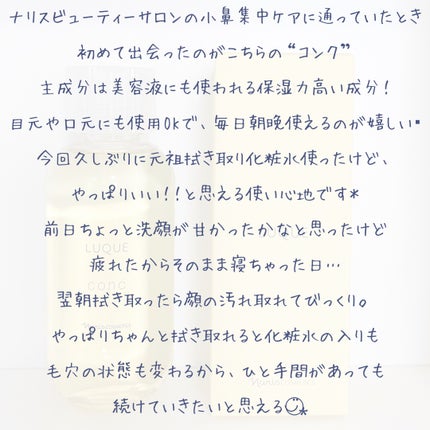 ナリスビューティーサロンの小鼻集中ケアに通っていたとき
初めて出会ったのがこちらの“コンク”
主成分は美容液にも使われる保湿力高い成分！
目元や口元にも使用OKで、毎日朝晩使えるのが嬉しい▪
今回久しぶりに元祖拭き取り化粧水使ったけど、
やっぱりいい！！と思える使い心地です*
前日ちょっと洗顔が甘かったかなと思ったけど
LUQUE
疲れたからそのまま寝ちゃった日…
conc
翌朝拭き取ったら顔の汚れ取れてびっくり。
やっぱりちゃんと拭き取れると化粧水の入りも
毛穴の状態も変わるから、ひと手間があっても
続けていきたいと思える☺︎*